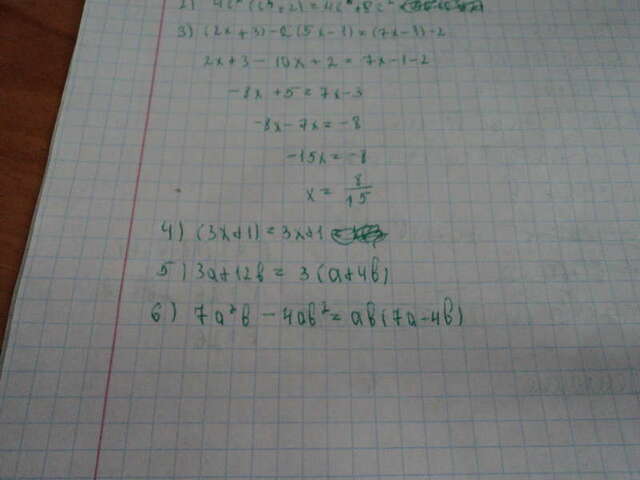 2) 4c² (c⁴+2) = 4c⁶+8c²
3) (2x+3)-2(5x-1)=(7x-1)-2
2x+3-10x+2=7x-1-2
-8x+5=7x-3
-8x-7x=-8
-15x=-8
x=8/15
4) (3x+1)=3x+1
5) 3a+12b=3(a+4b)
6) 7a²b-4ab²=ab(7a-4b)